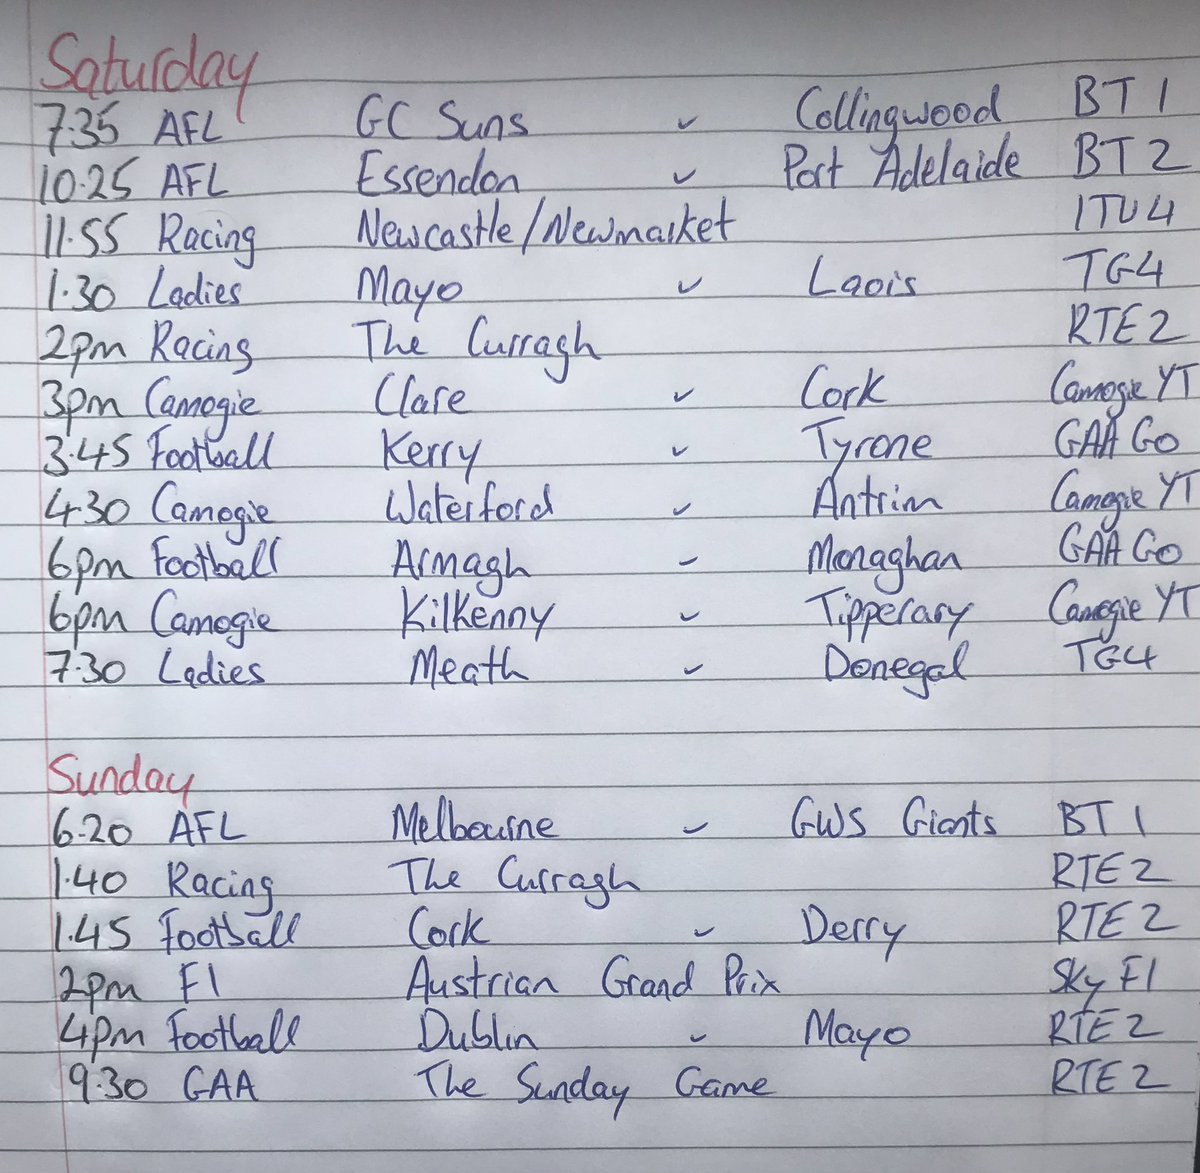 Saturday
7.35 AFL GC Suns v Collingwood BT 1
10.25 AFL Essendon v Port Adelaide BT 2
11.55 Racing Newcastle/Newmarket ITV4
1.30 Ladies Mayo v Laois TG4
2pm Racing The Curragh RTE 2
3pm Camogie Clare v Cork Camogie YT
3.45 Football Kerry v Tyrone GAA GO
4.30 Camogie Waterford v Antrim Camogie YT
6pm Football Armagh v Monaghan GAA GO
6pm Camogie Kilkenny v Tipperary Camogie YT
7.30 Ladies Meath v Donegal TG4
Sunday
6.20 AFL Melbourne v GWS Giants BT 1
1.40 Racing The Curragh RTE 2
1.45 Football Cork v Derry RTE 2
2pm F1 Austrian Grand Prix Sky F1
4pm Football Dublin v Mayo RTE 2
9.30 GAA The Sunday Game RTE 2